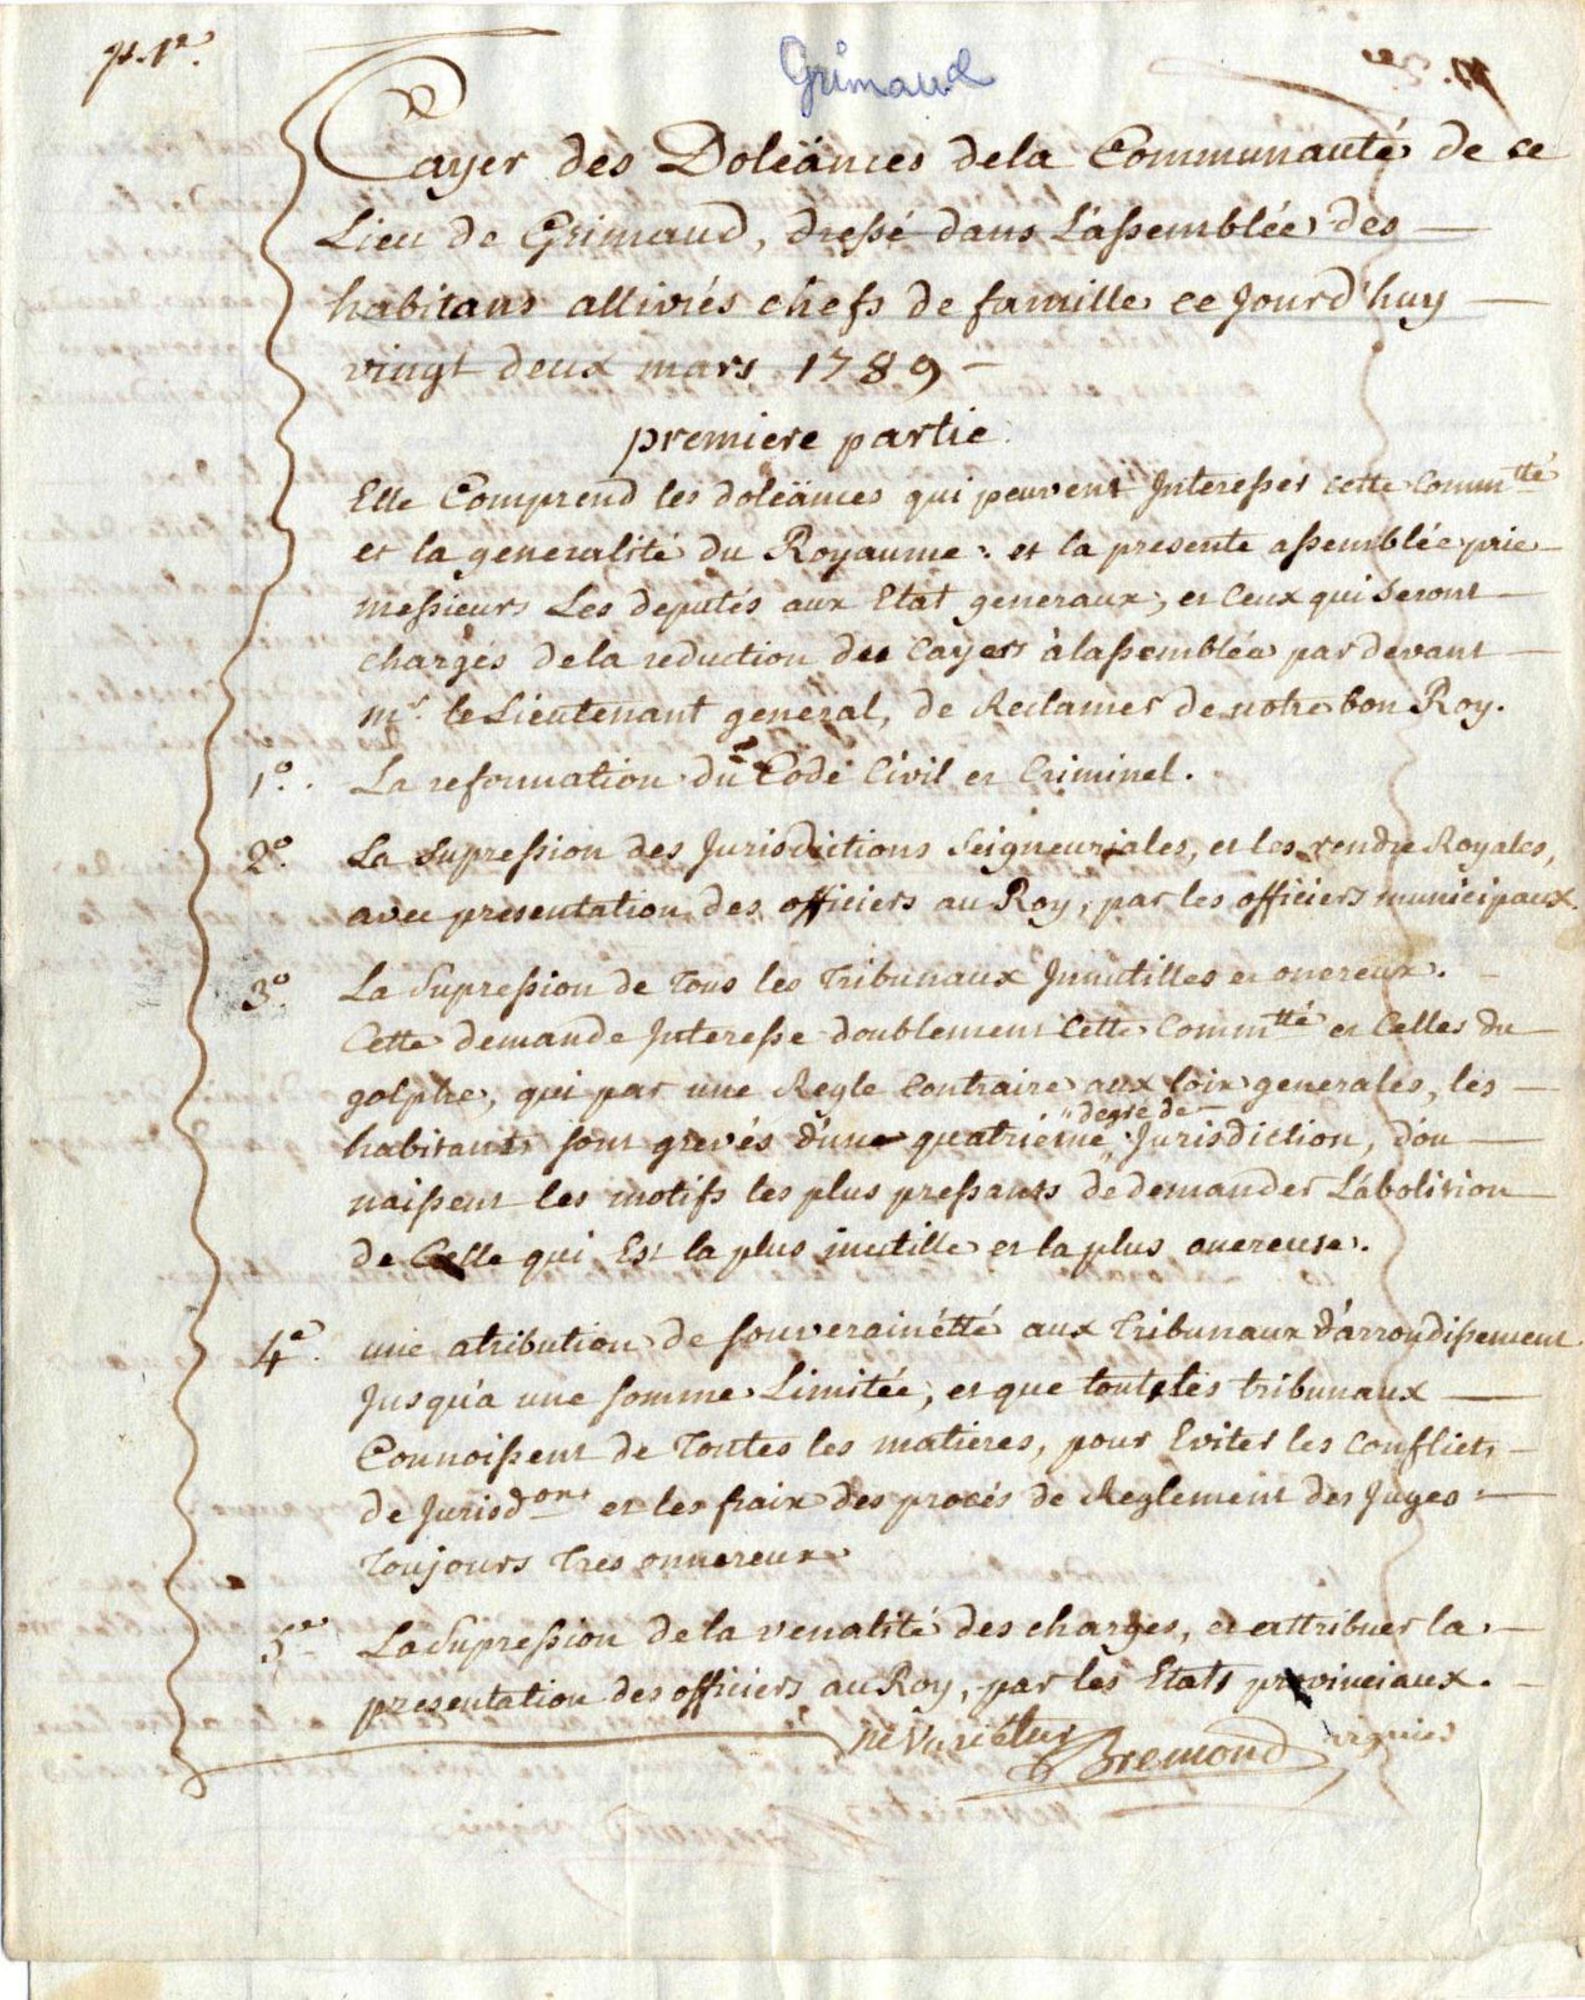 p. 1e.
Grimaud
Cayer des Doléances dela Communauté de ce
Lieu de Grimaud, dressé dans L'assemblée des
habitans allivrés chefs de famille ce Jourd'huy
vingt deux mars 1789
premiere partie.
Elle Comprend les doléances qui peuvent Interesser cette Commtté
et la generalité du Royaume : et la presente assemblée prie
messieurs Les deputés aux Etat generaux, et Ceux qui Seront
chargés dela reduction des Cayers à lassemblée pardevant
mr. le Lieutenant general, de Reclamer de notre bon Roy.
1o. La reformation du Code Civil et Criminel.
2o. La Supression des Jurisdictions Seigneuriales, et les rendre Royales,
avec presentation des officiers au Roy, par les officiers municipaux.
3o. La Supression de Tous les Tribunaux Innutilles et onereux.
Cette demande Interesse doublement Cette Commtté et Celles du
golphe, qui par une Regle Contraire aux loix generales, les
habitants sont grevés d'une quatrieme degré de Jurisdiction, d'ou
naissent les motifs les plus pressants de demander L'abolition
de Celle qui Est la plus inutille et la plus onereuse.
4e. une atribution de souverainétté aux Tribunaux d'arrondissement
Jusqu'a une somme Limitée, et que tout les tribunaux
Connoissent de Toutes les matieres, pour Eviter les Conflicts
de Jurisdons et les fraix des procés de Reglement des Juges
Toujours Tres onnereux
5e La Supression de la venalité des charges, et attribuer la
presentation des officiers au Roy, par les Etats provinciaux.
ne varietur
Bremond viguier